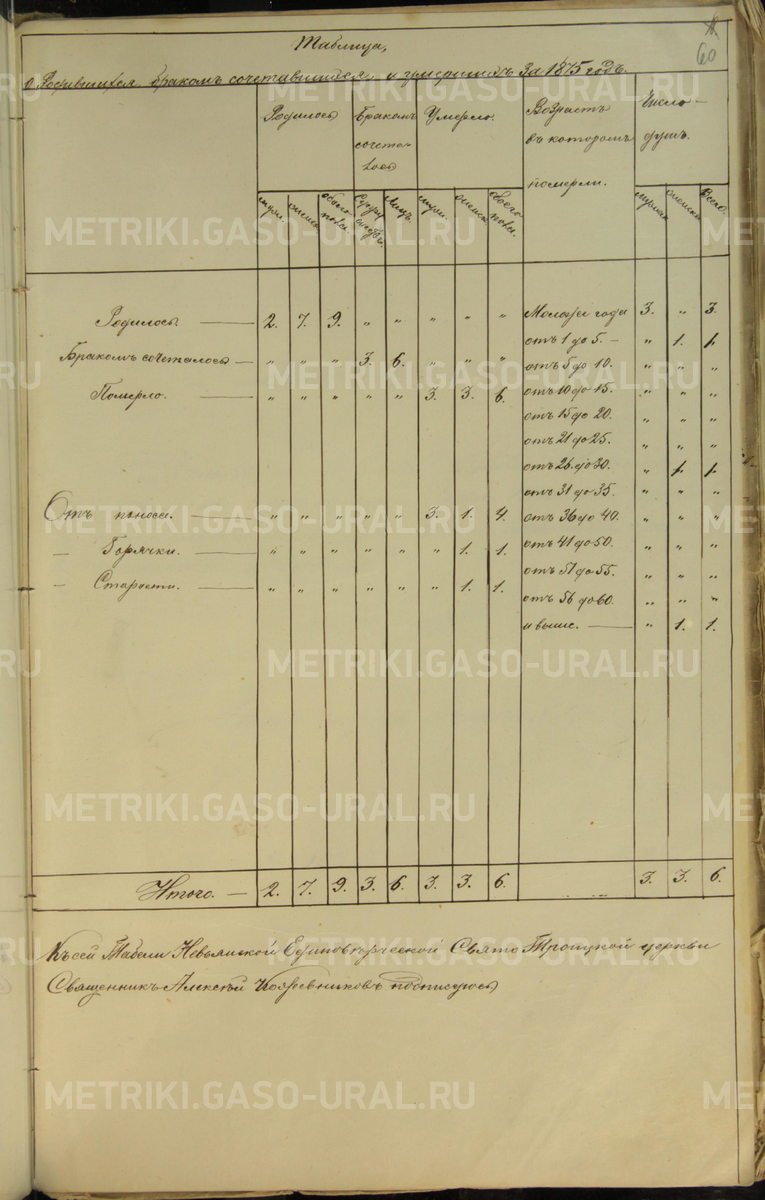 60
Таблица,
о Родившихся бракомъ сочетавшихся и умершихъ за 1875 годъ.
Родилось Бракомъ сочеталось Умерло. Возрастъ въ которомъ померли. Число душъ.
муж. женск. обоего пола. Супружествъ. Лицъ. муж. женск. обоего пола. мужск женск. Всего.
Родилось — 2. 7. 9. „ „ „ „ „ Моложе года 3. „ 3.
отъ 1 до 5. — „ 1. 1.
Бракомъ сочеталось — „ „ „ 3. 6. „ „ „ отъ 5 до 10. „ „ „
Померло. — „ „ „ „ „ 3. 3. 6. отъ 10 до 15. „ „ „
отъ 15 до 20. „ „ „
отъ 21 до 25. „ „ „
отъ 26 до 30. „ 1. 1.
отъ 31 до 35. „ „ „
Отъ поноса. — „ „ „ „ „ 3. 1. 4. отъ 36 до 40. „ „ „
— Горячки. — „ „ „ „ „ „ 1. 1. отъ 41 до 50. „ „ „
отъ 51 до 55. „ „ „
— Старости. — „ „ „ „ „ „ 1. 1. отъ 56 до 60. „ „ „
и выше. — „ 1. 1.
Итого. — 2. 7. 9. 3. 6. 3. 3. 6. 3. 3. 6.
Къ сей Табели Невьянской Единоверческой Свято Троицкой церкви
Священникъ Алексей Кожевниковъ подписуюсь
METRIKI.GASO-URAL.RU